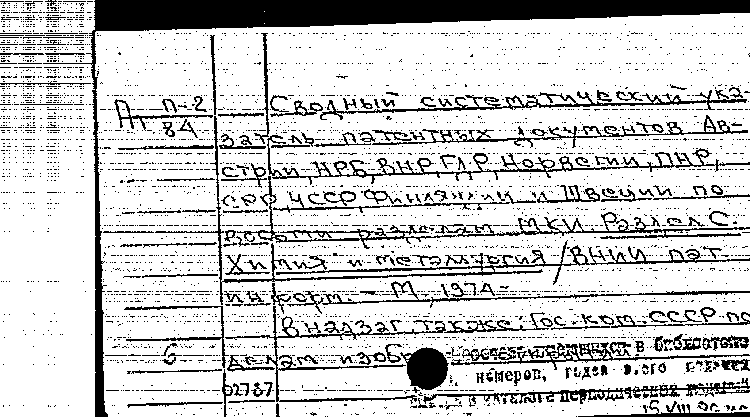 П-2 Сводный систематический ука-
84 затель патентных документов Ав-
стрии, НРБ, ВНР, ГДР, Норвегии, ПНР,
СРР, ЧССР, Финляндии и Швеции по
восьми разделам МКИ. Раздел С.
Химия и металлургия / ВНИИ пат.
информ. - М., 1974-
В надзаг. также: Гос. ком. СССР по
6. делам изобр
в библиотеке
номеров,
02787 в каталоге периодических изданий